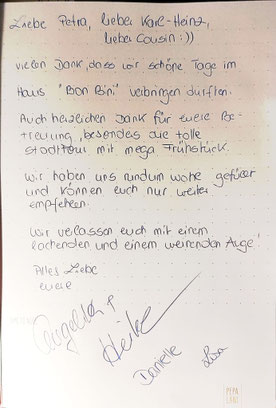 Liebe Petra, lieber Karl-Heinz,
lieber Cousin :))
vielen Dank, dass wir schöne Tage im
Haus "Bon Bini" verbringen durften.
Auch herzlichen Dank für euere Be-
treuung, besonders die tolle
Stadttour mit mega Frühstück.
Wir haben uns rundum wohl gefühlt
und können euch nur weiter
empfehlen.
Wir verlassen euch mit einem
lachenden und einem weinenden Auge!
Alles Liebe
euere
Angelika
Heike
Danielle
Lisa